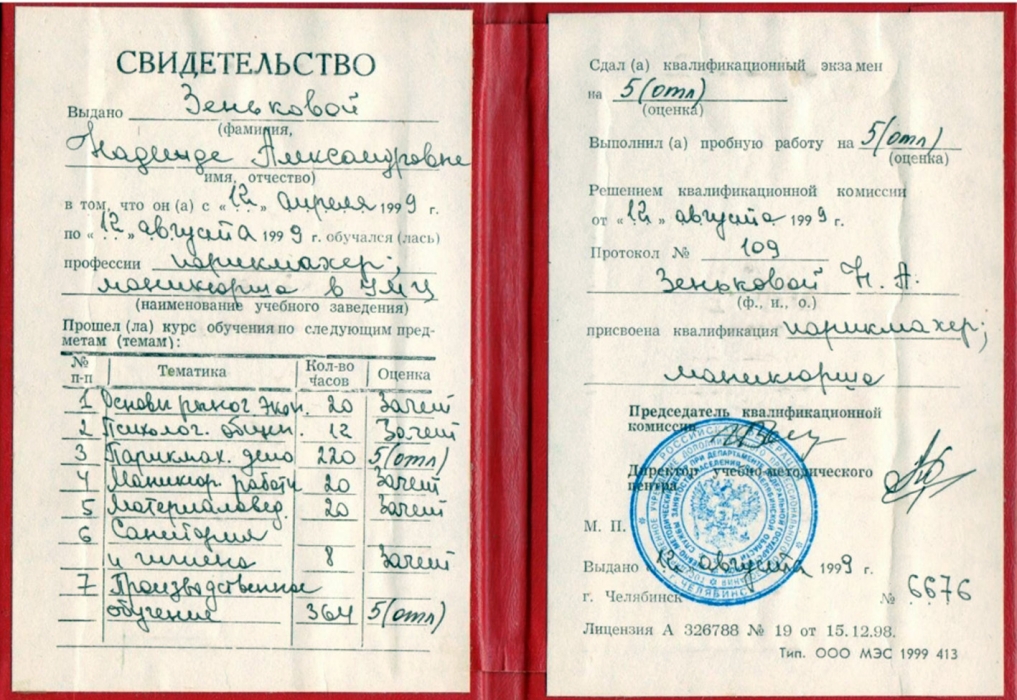 СВИДЕТЕЛЬСТВО
Выдано Зеньковой
(фамилия,
Надежде Александровне
имя, отчество)
в том, что он (а) с «12» апреля 1999 г.
по «12» августа 1999 г. обучался (лась)
профессии парикмахер;
маникюрша в УМЦ
(наименование учебного заведения)
Прошел (ла) курс обучения по следующим пред-
метам (темам):
№ п-п Тематика Кол-во часов Оценка
1 Основы рыноч. экон. 20 Зачет
2 Психолог. общен. 12 Зачет
3 Парикмах. дело 220 5(отл)
4 Маникюр. работы 20 Зачет
5 Материаловед. 20 Зачет
6 Санитария
и гигиена 8 Зачет
7 Производственное
обучение 364 5(отл)
Сдал (а) квалификационный экзамен
на 5(отл)
(оценка)
Выполнил (а) пробную работу на 5(отл)
(оценка)
Решением квалификационной комиссии
от «12» августа 1999 г.
Протокол № 109
Зеньковой Н. А.
(ф., и., о.)
присвоена квалификация парикмахер;
маникюрша
Председатель квалификационной
комиссии
Директор учебно-методического
центра
М. П.
Выдано 12 августа 1999 г.
г. Челябинск № 6676
Лицензия А 326788 № 19 от 15.12.98.
Тип. ООО МЭС 1999 413